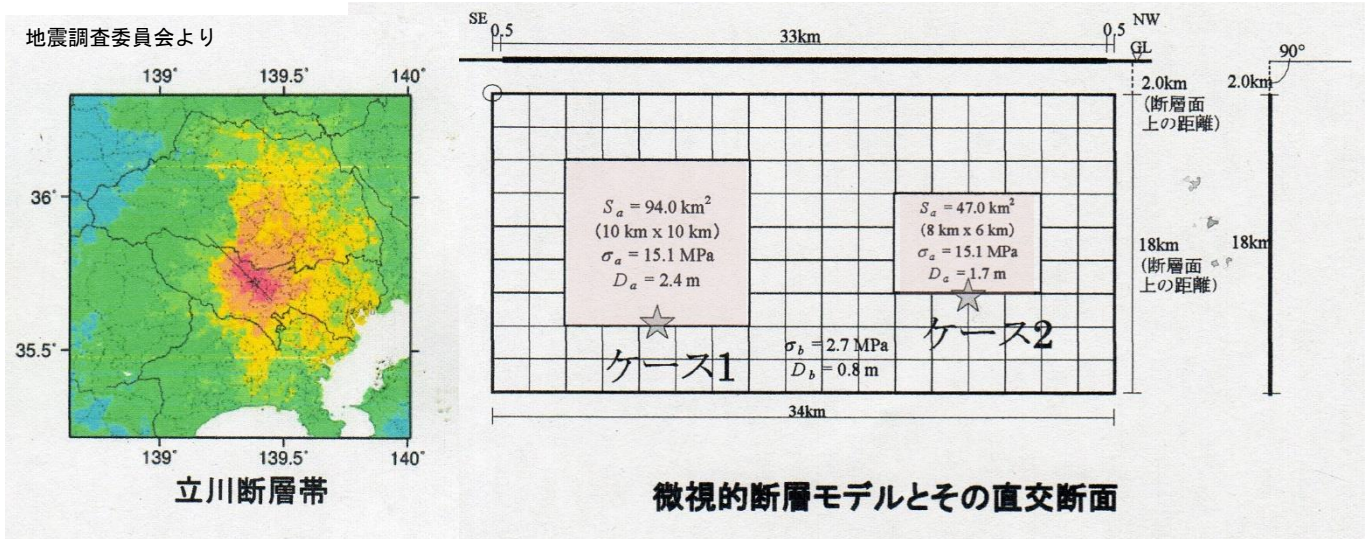 地震調査委員会より
139° 139.5° 140°
36°
35.5°
139° 139.5° 140°
立川断層帯
SE 0.5 33km 0.5 NW
GL
2.0km
(断層面
上の距離)
90°
2.0km
Sa = 94.0 km²
(10 km x 10 km)
σa = 15.1 MPa
Da = 2.4 m
ケース1
Sa = 47.0 km²
(8 km x 6 km)
σa = 15.1 MPa
Da = 1.7 m
ケース2
σb = 2.7 MPa
Db = 0.8 m
18km
(断層面
上の距離)
18km
34km
微視的断層モデルとその直交断面